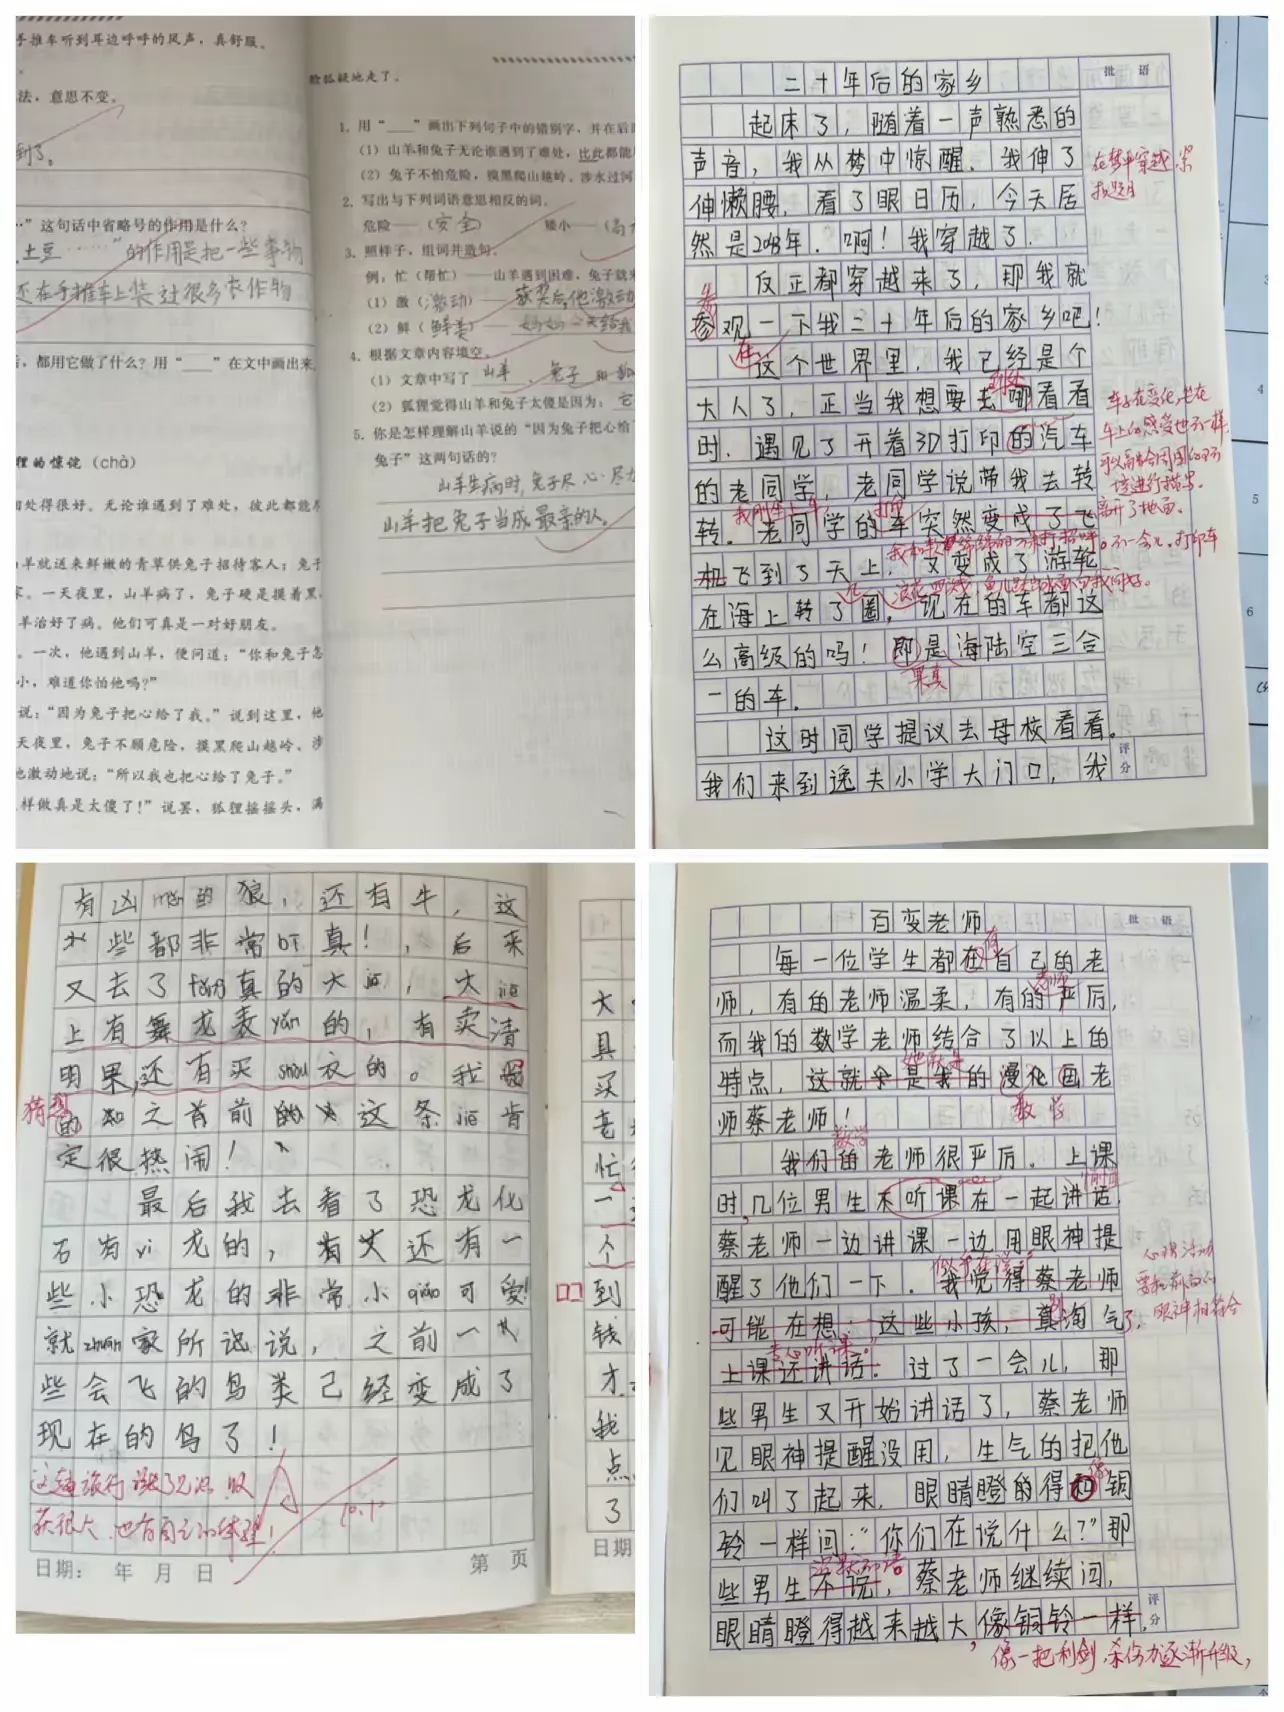 手推车听到耳边呼呼的风声，真舒服。
法，意思不变。
到了。
…”这句话中省略号的作用是什么？
土豆……”的作用是把一些事物
还在手推车上装过很多农作物
，都用它做了什么？用“____”在文中画出来
狸的惊诧（chà）
相处得很好。无论谁遇到了难处，彼此都能
羊就送来鲜嫩的青草供兔子招待客人；兔子
家。一天夜里，山羊病了，兔子硬是摸着黑
羊治好了病。他们可真是一对好朋友。
。一次，他遇到山羊，便问道：“你和兔子怎
小，难道你怕他吗？”
说：“因为兔子把心给了我。”说到这里，他
天夜里，兔子不顾危险，摸黑爬山越岭、涉
他激动地说：“所以我也把心给了兔子。”
样做真是太傻了！”说罢，狐狸摇摇头，满
脸狐疑地走了。
1. 用“____”画出下列句子中的错别字，并在后
（1）山羊和兔子无论谁遇到了难处，比此都能
（2）兔子不怕危险，摸黑爬山越岭、涉水过河
2. 写出与下列词语意思相反的词。
危险——（安全） 矮小——（高
3. 照样子，组词并造句。
例：忙（帮忙）——山羊遇到困难，兔子就
（1）激（激动）——获奖后，他激动
（2）鲜（鲜美）——
4. 根据文章内容填空。
（1）文章中写了 山羊、兔子 和
（2）狐狸觉得山羊和兔子太傻是因为：
5. 你是怎样理解山羊说的“因为兔子把心给
兔子”这两句话的？
山羊生病时，兔子尽心尽力
山羊把兔子当成最亲的人。
批 语
二十年后的家乡
起床了，随着一声熟悉的
声音，我从梦中惊醒。我伸了
伸懒腰，看了眼日历，今天居
然是2048年．啊！我穿越了．
反正都穿越来了，那我就
参观一下我二十年后的家乡吧！
这个世界里，我已经是个
大人了，正当我想要去哪看看
时．遇见了开着3D打印的汽车
的老同学，老同学说带我去转
转。老同学的车突然变成了飞
机飞到了天上，又变成了游轮
在海上转了圈，现在的车都这
么高级的吗！即是海陆空三合
一的车．
这时同学提议去母校看看。
我们来到逸夫小学大门口，我
评分
在梦中穿越，紧
扣题目
到处
我刚坐上车
打印
离开了地面。
果真
4
5
6
有凶měng的狼，还有牛，这
些都非常bī真！，后来
又去了fǎng真的大jiē，大jiē
上有舞龙表yǎn的，有卖清
明果，还有买shòu衣的。我
的 之前 这条jiē肯
定很热闹！
最后我去看了恐龙化
石有yì龙的，还有一
些小恐龙的非常小qiǎo可爱！
就zhuān家所说，之前一
些会飞的鸟类已经变成了
现在的鸟了！
这趟旅行 收
获很大，也有自己的
10.1
日期： 年 月 日 第 页
大
具
买
老
忙
一
个
到
钱
才
我
点
了
日期
批 语
百变老师
每一位学生都在自己的老
师，有的老师温柔，有的严厉，
而我的数学老师结合了以上的
特点，这就 是我的漫化画老
师蔡老师！
我们的老师很严厉．上课
时，几位男生不听课在一起讲话．
蔡老师一边讲课一边用眼神提
醒了他们一下．我觉得蔡老师
可能在想：这些小孩，真淘气了，
上课还讲话。过了一会儿，那
些男生又开始讲话了，蔡老师
见眼神提醒没用，生气的把他
们叫了起来．眼睛瞪的得和铜
铃一样问：“你们在说什么？”那
些男生不说，蔡老师继续问，
眼睛瞪得越来越大，像铜铃一样．
评分
有
老师
数学
数学
心理活动
要和前面的
眼神相符合
专心听课。”
像
沉默不语
像一把利剑，杀伤力逐渐升级，